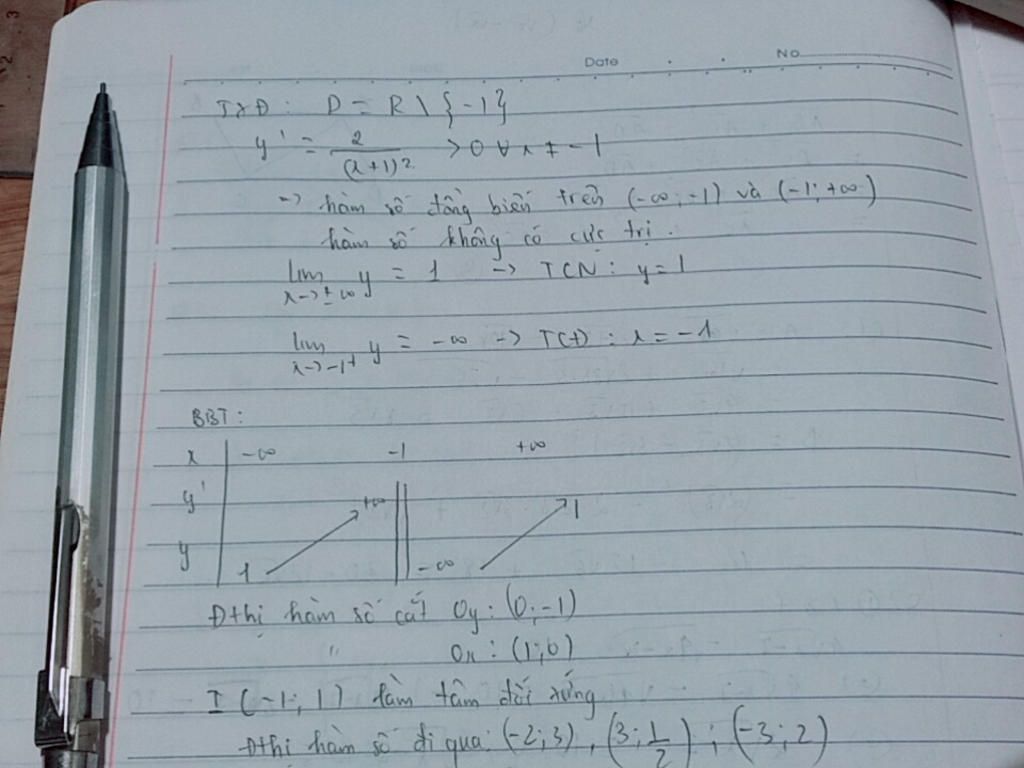 Date No
TXĐ: D = R \ {-1}
y' = 2/(x+1)² >0 ∀ x ≠ -1
-> hàm số đồng biến trên (-∞; -1) và (-1; +∞)
hàm số không có cực trị.
lim x->±∞ y = 1 -> TCN: y=1
lim x->-1⁺ y = -∞ -> TCĐ: x = -1
BBT:
x -∞ -1 +∞
y'
+∞ 1
y 1 -∞
Đthị hàm số cắt Oy: (0; -1)
" Ox: (1; 0)
I (-1; 1) làm tâm đối xứng
Đthị hàm số đi qua: (-2; 3), (3; 1/2); (-3; 2)